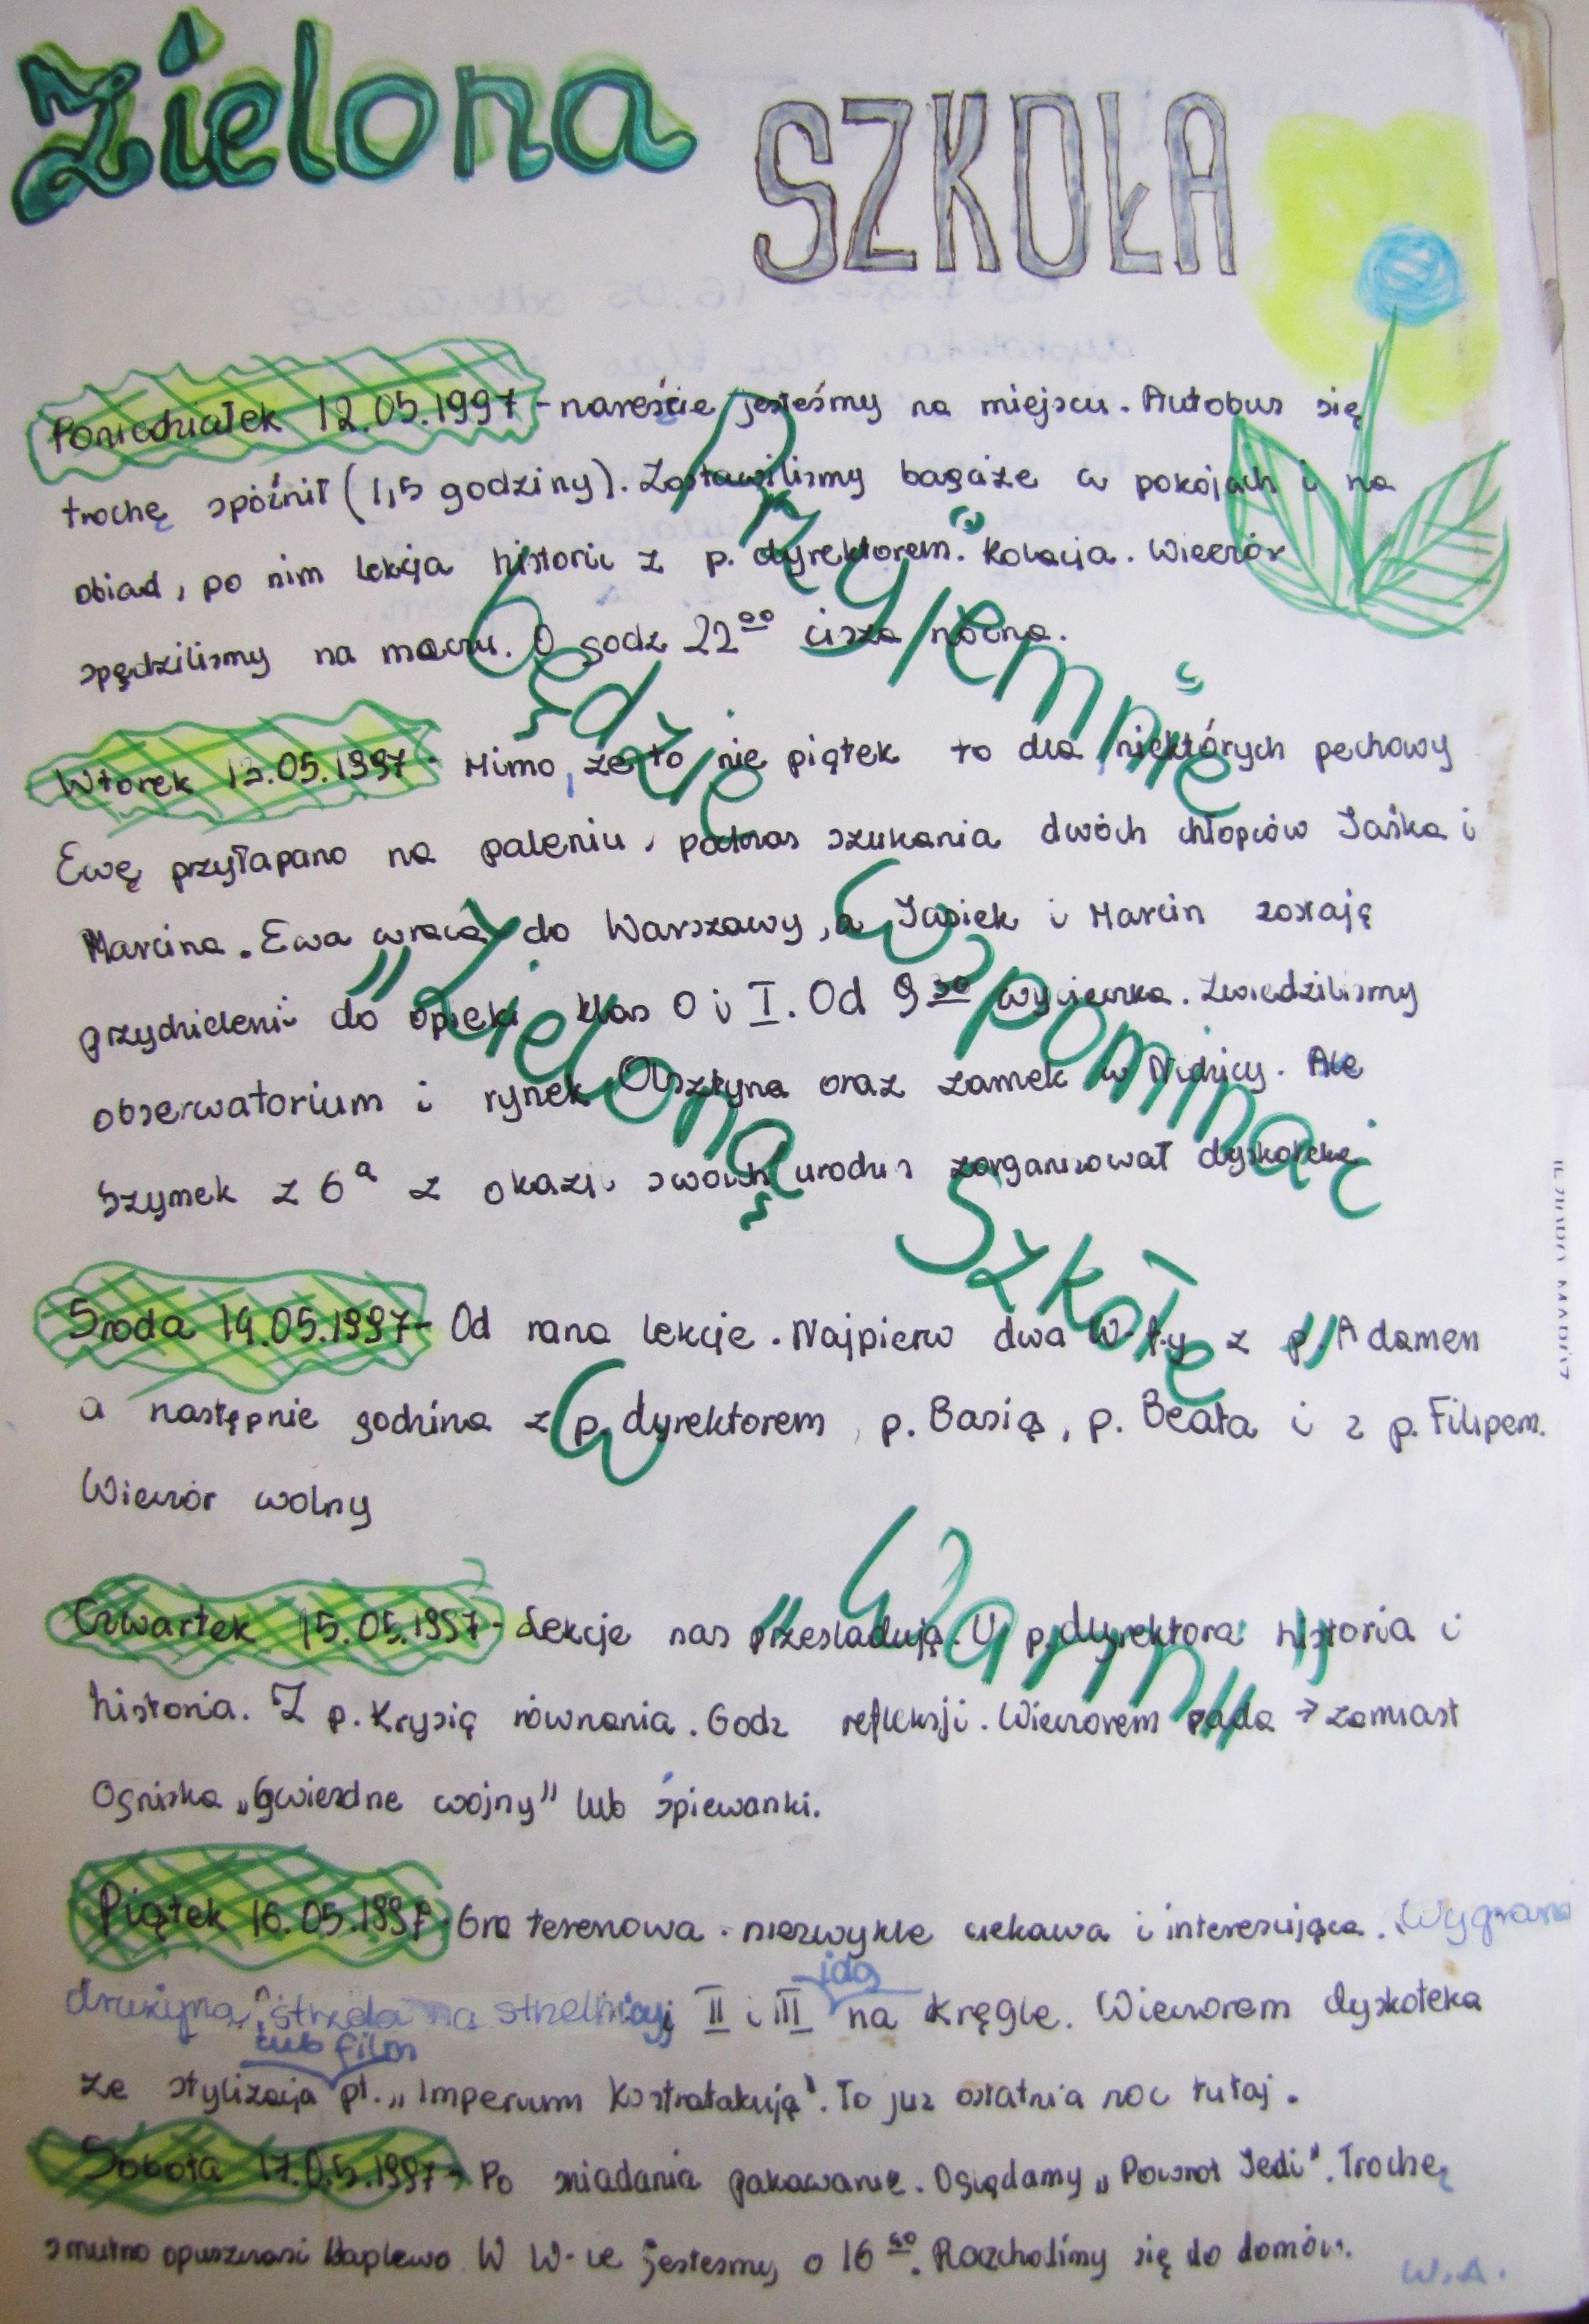 Zielona
SZKOŁA
Poniedziałek 12.05.1997 - nareście jesteśmy na miejscu. Autobus się
trochę spóźnił (1,5 godziny). Zostawilismy bagaże w pokojach i na
obiad, po nim lekcja historii z p. dyrektorem. Kolacja. Wieczór
spędzilismy na meczu. O godz 22 00 cisza nocna.
Wtorek 13.05.1997 - Mimo, że to nie piątek to dla niektórych pechowy
Ewę przyłapano na paleniu, podczas szukania dwóch chłopców Jaśka i
Marcina. Ewa wraca do Warszawy, a Jasiek i Marcin zostają
przydzieleni do opieki klas 0 i I. Od 9 30 wycieczka. Zwiedzilismy
obserwatorium i rynek Olsztyna oraz zamek w Nidzicy. Ale
Szymek z 6 a z okazji swoich urodzin zorganizował dyskotekę
Środa 14.05.1997 - Od rana lekcje. Najpierw dwa W-f-y z p. Adamem
a następnie godzina z p. dyrektorem, p. Basią, p. Beata i z p. Filipem.
Wieczór wolny
Czwartek 15.05.1997 - Lekcje nas przesladują. U p. dyrektora historia i
historia. Z p. Krysią równania. Godz refleksji. Wieczorem pada → zamiast
Ogniska „Gwiezdne wojny" lub śpiewanki.
Piątek 16.05.1997 - Gra terenowa - niezwykle ciekawa i interesująca. Wygrana
drużyna strzela na strzelnicy, II i III idą na Kręgle. Wieczorem dyskoteka
lub film
ze stylizacja pt. „Imperium Kontratakują". To juz ostatnia noc tutaj.
Sobota 17.05.1997 - Po sniadania pakawanie. Oglądamy „Powrot Jedi". Trochę
smutno opuszczać Waplewo. W W-ie jestesmy o 16 . Rozchodimy się do domów.
W.A.
Przyjemnie
będzie
Wspominać
"Zieloną
Szkołę"
W
"Warmii"